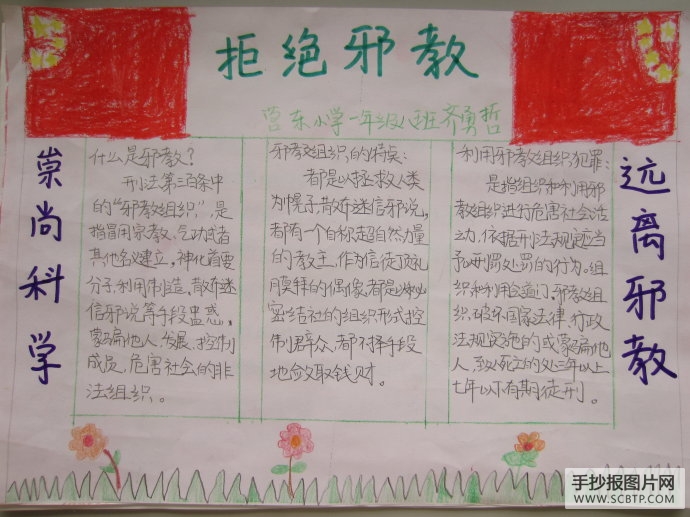 拒绝邪教
营东小学一年级八班齐勇哲
崇尚科学
什么是邪教?
刑法第三百条中
的“邪教组织”,是
指冒用宗教、气功或者
其他名义建立,神化首要
分子,利用制造、散布迷
信邪说等手段蛊惑、
蒙骗他人,发展、控制
成员,危害社会的非
法组织。
邪教组织的特点:
都是以拯救人类
为幌子,散布迷信邪说。
都有一个自称超自然力量
的教主,作为信徒顶礼
膜拜的偶像,都是以秘
密结社的组织形式控
制群众,都不择手段
地敛取钱财。
利用邪教组织犯罪:
是指组织和利用邪
教组织进行危害社会活
动,依据刑法规定应当
予以刑罚处罚的行为。组
织和利用会道门、邪教组
织,破坏国家法律、行政
法规实施的或蒙骗他
人,致人死亡的,处三年以上
七年以下有期徒刑。
远离邪教
手抄报图片网
WWW.SCBTP.COM